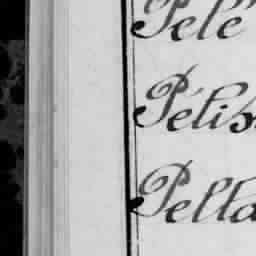 Pelé
Pélis
Pella